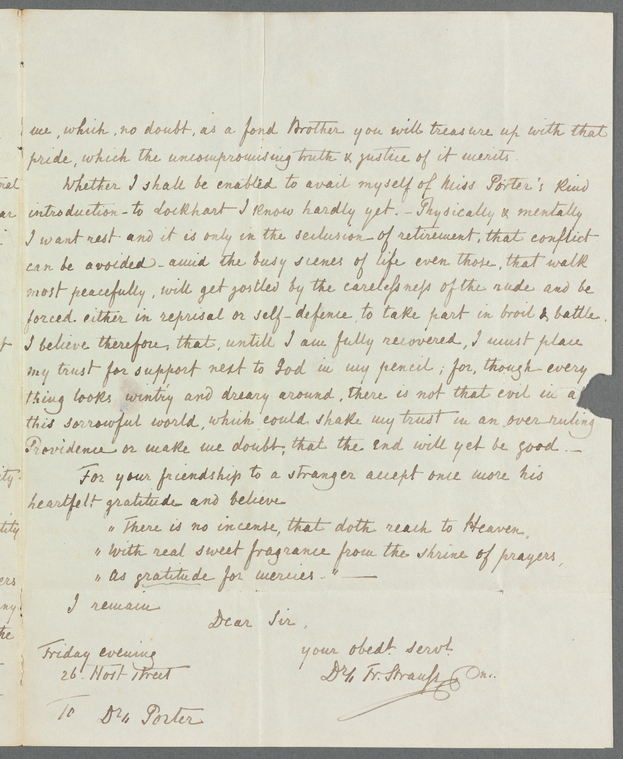 me, which, no doubt, as a fond Brother you will treasure up with that
pride, which the uncompromising truth & justice of it merits.
Whether I shall be enabled to avail myself of Miss Porter's kind
introduction - to Lockhart I know hardly yet. - Physically & mentally
I want rest and it is only in the seclusion of retirement, that conflict
can be avoided - amid the busy scenes of life even those, that walk
most peacefully, will get jostled by the carelessness of the rude and be
forced either in reprisal or self-defence, to take part in broil & battle.
I believe therefore, that, untill I am fully recovered, I must place
my trust for support next to God in my pencil; for, though every
thing looks wintry and dreary around, there is not that evil in a
this sorrowful world, which could shake my trust in an over-ruling
Providence or make me doubt, that the end will yet be good. -
For your friendship to a stranger accept once more his
heartfelt gratitude and believe
" There is no incense, that doth reach to Heaven,
" With real sweet fragrance from the shrine of prayers,
" As gratitude for mercies. " -
I remain
Dear Sir,
your obedt. servt.
Friday evening
Dr,, Fr. Strauß
26. Host Street
To Dr,, Porter